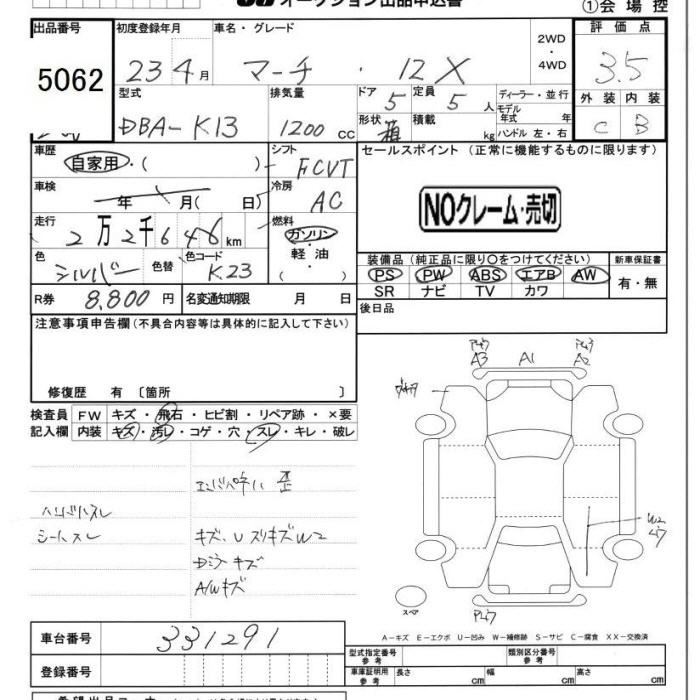 オークション出品申込書
①会場控
出品番号 初度登録年月 車名・グレード 2WD・4WD 評価点
5062 23 4月 マーチ ・ 12X 3.5
型式 排気量 ドア 5 定員 5 人 ディーラー・並行 外装 内装
DBA-K13 1200 cc 形状 箱 積載 kg モデル年式 年 C B
ハンドル 左・右
車歴 自家用・( ) シフト FCVT セールスポイント (正常に機能するものに限ります)
車検 年 月( 日) 冷房 AC
NOクレーム・売切
走行 2万2千646km 燃料 ガソリン・軽油・( )
色 シルバー 色替 色コード K23
装備品(純正品に限り○をつけてください) 新車保証書
PS PW ABS エアB AW 有・無
SR ナビ TV カワ
R券 8,800円 名変通知期限 月 日 後日品
注意事項申告欄(不具合内容等は具体的に記入して下さい)
修復歴 有 〔箇所 〕
検査員 FW キズ・飛石・ヒビ割・リペア跡・×要
記入欄 内装 キズ・汚レ・コゲ・穴・スレ・キレ・破レ
A3 A1 A2
ハンドルスレ
シートスレ キズ、Uスリキズ W2
Dミラーキズ
A/Wキズ
W2
スペア
A-キズ E-エクボ U-凹み W-補修跡 S-サビ C-腐食 XX-交換済
車台番号 331291
登録番号
型式指定番号 参考 類別区分番号 参考
車庫証明用 参考 長さ cm 幅 cm 高さ cm